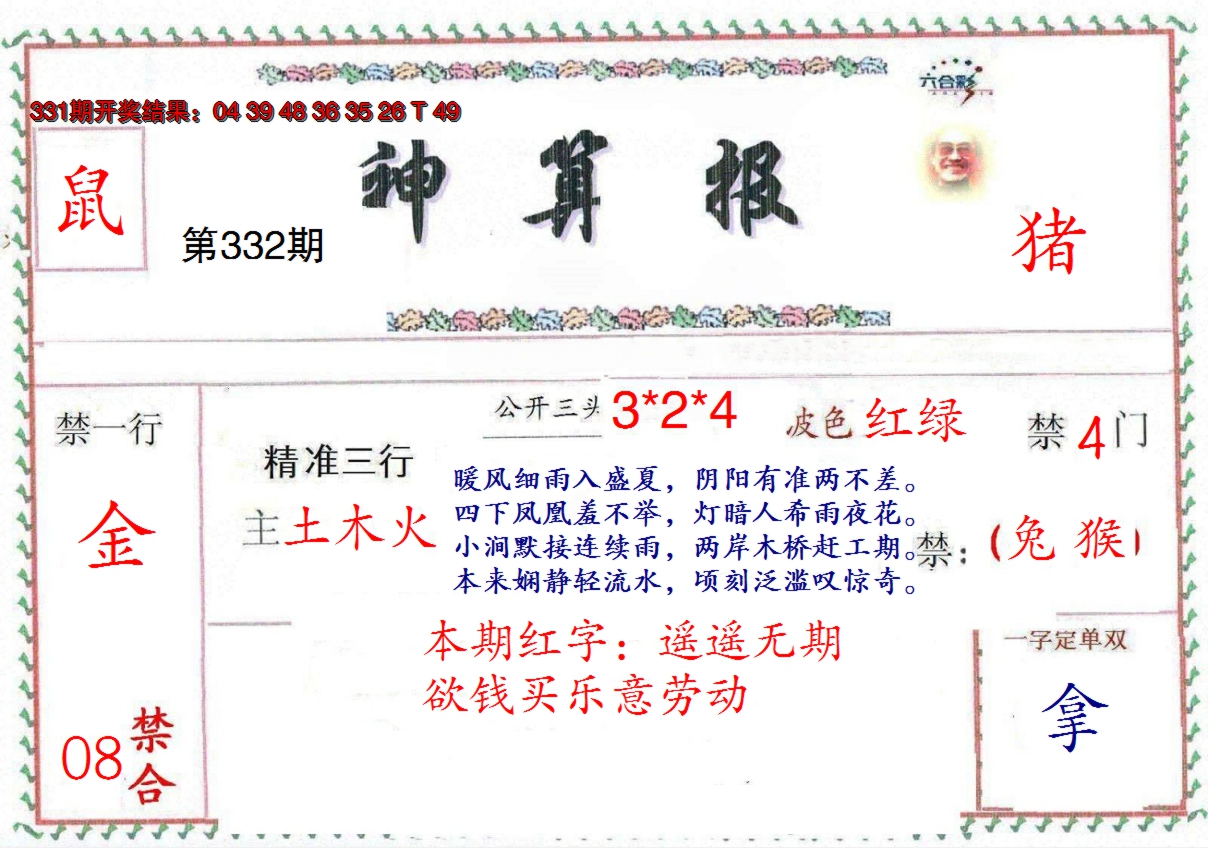 六合彩
331期开奖结果：04 39 48 36 35 26 T 49
神算报
鼠
第332期
猪
禁一行
金
08
禁合
精准三行
主土木火
公开三头 3*2*4
波色 红绿
禁 4 门
暖风细雨入盛夏，阴阳有准两不差。
四下凤凰羞不举，灯暗人希雨夜花。
小涧默接连续雨，两岸木桥赶工期。
本来娴静轻流水，顷刻泛滥叹惊奇。
禁：（兔 猴）
本期红字：遥遥无期
欲钱买乐意劳动
一字定单双
拿